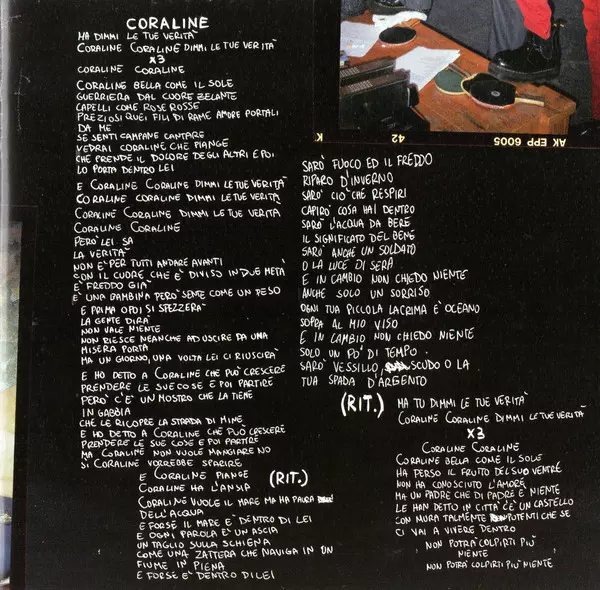 CORALINE
MA DIMMI LE TUE VERITÀ
CORALINE CORALINE DIMMI LE TUE VERITÀ
X3
CORALINE CORALINE
CORALINE BELLA COME IL SOLE
GUERRIERA DAL CUORE ZELANTE
CAPELLI COME ROSE ROSSE
PREZIOSI QUEI FILI DI RAME AMORE PORTALI
DA ME
SE SENTI CAMPANE CANTARE
VEDRAI CORALINE CHE PIANGE
CHE PRENDE IL DOLORE DEGLI ALTRI E POI
LO PORTA DENTRO LEI
E CORALINE CORALINE DIMMI LE TUE VERITÀ
CORALINE CORALINE DIMMI LE TUE VERITÀ
CORALINE CORALINE DIMMI LE TUE VERITÀ
CORALINE CORALINE
PERÒ LEI SA
LA VERITÀ
NON È PER TUTTI ANDARE AVANTI
CON IL CUORE CHE È DIVISO IN DUE METÀ
È FREDDO GIÀ
È UNA BAMBINA PERÒ SENTE COME UN PESO
E PRIMA O POI SI SPEZZERÀ
LA GENTE DIRÀ
NON VALE NIENTE
NON RIESCE NEANCHE AD USCIRE DA UNA
MISERA PORTA
MA UN GIORNO, UNA VOLTA LEI CI RIUSCIRÀ
E HO DETTO A CORALINE CHE PUÒ CRESCERE
PRENDERE LE SUE COSE E POI PARTIRE
PERÒ C'È UN MOSTRO CHE LA TIENE
IN GABBIA
CHE LE RICOPRE LA STRADA DI MINE
E HO DETTO A CORALINE CHE PUÒ CRESCERE
PRENDERE LE SUE COSE E POI PARTIRE
MA CORALINE NON VUOLE MANGIARE NO
SÌ CORALINE VORREBBE SPARIRE
E CORALINE PIANGE (RIT.)
CORALINE HA L'ANSIA
CORALINE VUOLE IL MARE MA HA PAURA
DELL'ACQUA
E FORSE IL MARE È DENTRO DI LEI
E OGNI PAROLA È UN'ASCIA
UN TAGLIO SULLA SCHIENA
COME UNA ZATTERA CHE NAVIGA IN UN
FIUME IN PIENA
E FORSE È DENTRO DI LEI
K 42 AK EPP 6005
SARÒ FUOCO ED IL FREDDO
RIPARO D'INVERNO
SARÒ CIÒ CHE RESPIRI
CAPIRÒ COSA HAI DENTRO
SARÒ L'ACQUA DA BERE
IL SIGNIFICATO DEL BENE
SARÒ ANCHE UN SOLDATO
O LA LUCE DI SERA
E IN CAMBIO NON CHIEDO NIENTE
ANCHE SOLO UN SORRISO
OGNI TUA PICCOLA LACRIMA È OCEANO
SOPRA AL MIO VISO
E IN CAMBIO NON CHIEDO NIENTE
SOLO UN PO' DI TEMPO
SARÒ VESSILLO, SCUDO O LA
TUA SPADA D'ARGENTO
(RIT.) MA TU DIMMI LE TUE VERITÀ
CORALINE CORALINE DIMMI LE TUE VERITÀ
X3
CORALINE CORALINE
CORALINE BELLA COME IL SOLE
HA PERSO IL FRUTTO DEL SUO VENTRE
NON HA CONOSCIUTO L'AMORE
MA UN PADRE CHE DI PADRE È NIENTE
LE HAN DETTO IN CITTÀ C'È UN CASTELLO
CON MURA TALMENTE POTENTI CHE SE
CI VAI A VIVERE DENTRO
NON POTRÀ COLPIRTI PIÙ
NIENTE
NON POTRÀ COLPIRTI PIÙ NIENTE